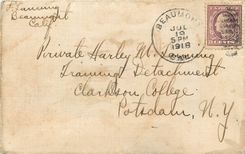 Lansing
Beaumont
Calif
BEAUMONT
JUL
19
5 PM
1918
CAL.
Private Harley W. Lansing
Training Detachment
Clarkson College
Potsdam, N.Y.